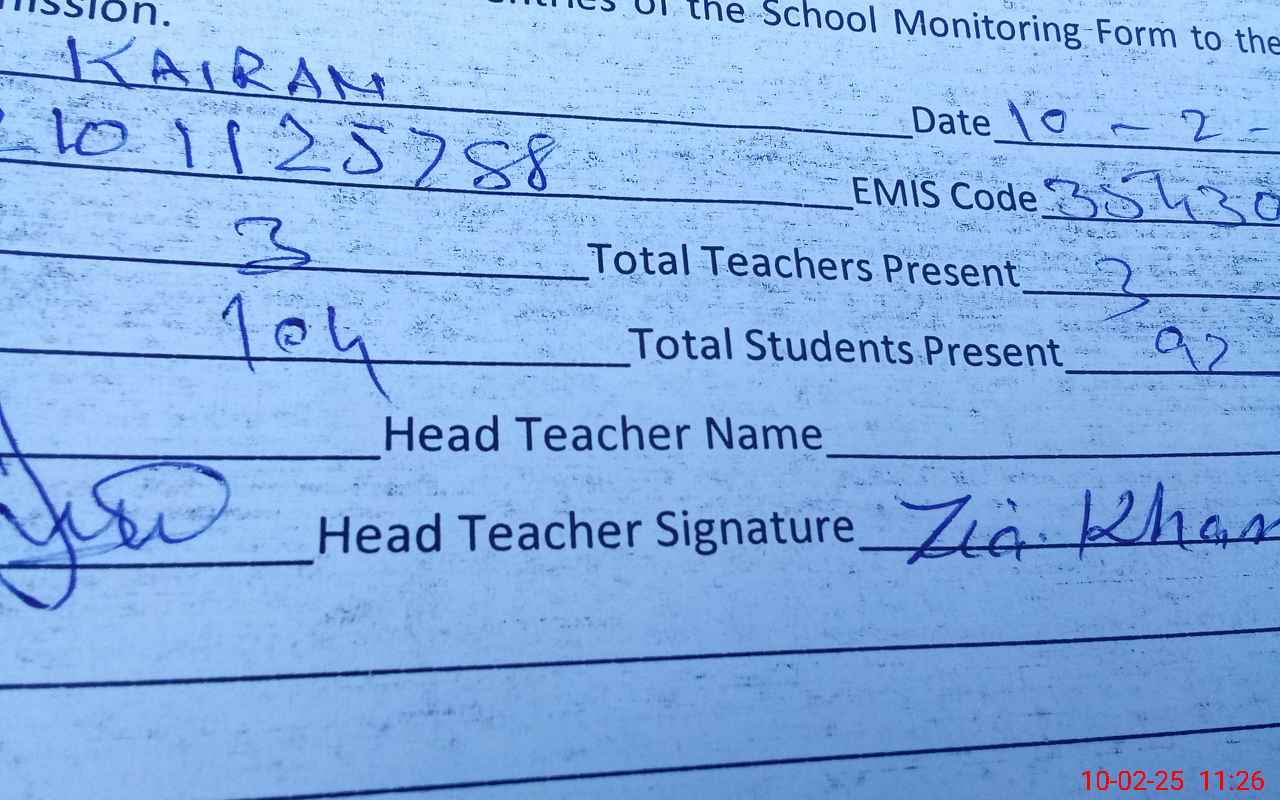 mission. entries of the School Monitoring Form to the
KAIRAN Date 10 - 2 -
2101125788 EMIS Code 35430
3 Total Teachers Present 3
104 Total Students Present 92
Head Teacher Name
Head Teacher Signature Zia Khan
10-02-25 11:26